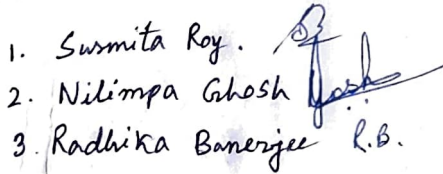 1. Susmita Roy.
2. Nilimpa Ghosh
3. Radhika Banerjee R.B.